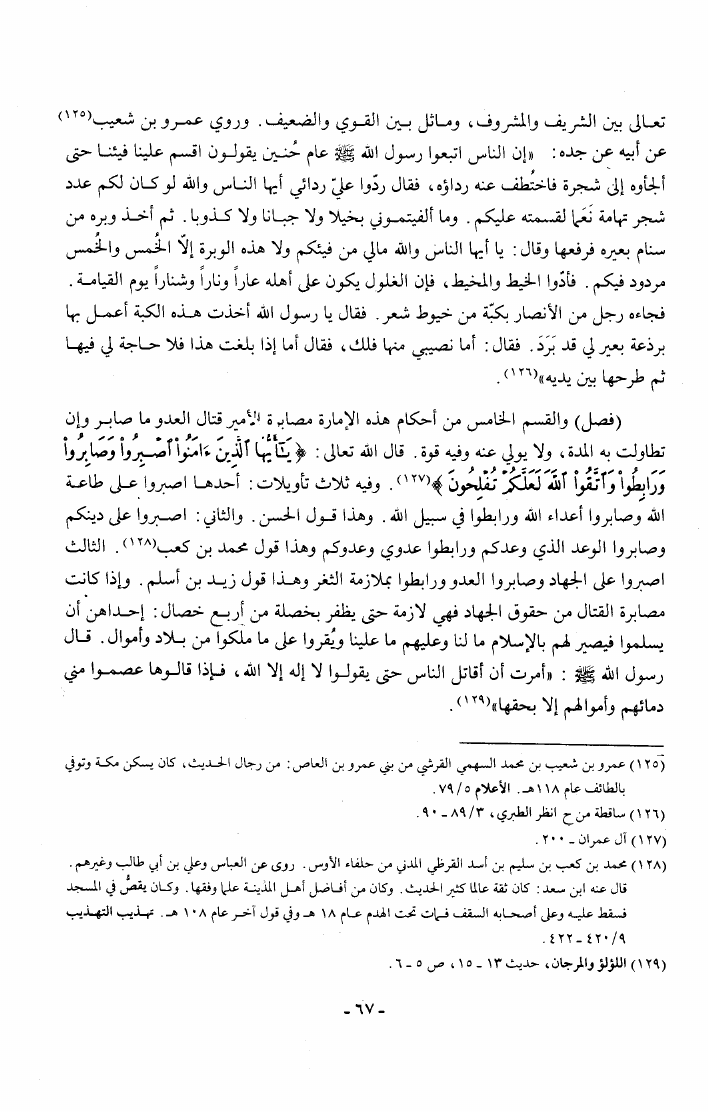 تعـالى بين الشريف والمشروف، ومـاثل بـين القـوي والضعيف. وروي عمـرو بن شعيب(١٢٥)
عن أبيه عن جده: «إن الناس اتبعوا رسول الله ﷺ عام حُنَـين يقولـون اقسم علينا فيئنـا حتى
ألجأوه إلى شجرة فاختُطف عنه رداؤه، فقال ردّوا عليّ ردائي أيها النـاس والله لو كـان لكم عدد
شجر تهامة نَعَما لقسمته عليكم. وما ألفيتمـوني بخيلا ولا جبـانا ولا كـذوبا. ثم أخـذ وبره من
سنام بعيره فرفعها وقال: يا أيها الناس والله مالي من فيئكم ولا هذه الوبرة إلّا الخُمس والخُمس
مردود فيكم. فأدّوا الخيط والمخيط، فإن الغلول يكون على أهله عاراً وناراً وشناراً يوم القيامـة.
فجاءه رجل من الأنصار بكبّة من خيوط شعر. فقال يا رسول الله أخذت هـذه الكبة أعمـل بها
برذعة بعير لي قد بَرَدَ. فقال: أما نصيبي منها فلك، فقال أما إذا بلغت هذا فلا حـاجة لي فيهـا
ثم طرحها بين يديه»(١٢٦).
(فصل) والقسم الخامس من أحكام هذه الإمارة مصابرة الأمير قتال العدو ما صابـر وإن
تطاولت به المدة، ولا يولي عنه وفيه قوة. قال الله تعالى: ﴿يَـٰٓأَيُّهَا ٱلَّذِينَ ءَامَنُواْ ٱصْـبِرُواْ وَصَابِرُواْ
وَرَابِطُواْ وَٱتَّقُواْ ٱللَّهَ لَعَلَّكُمْ تُفْلِحُونَ﴾(١٢٧). وفيه ثلاث تأويلات: أحدهـا اصبروا عـلى طاعـة
الله وصابروا أعداء الله ورابطوا في سبيل الله. وهذا قـول الحسن. والثاني: اصـبروا على دينكم
وصابروا الوعد الذي وعدكم ورابطوا عدوي وعدوكم وهذا قول محمد بن كعب(١٢٨). الثالث
اصبروا على الجهاد وصابروا العدو ورابطوا بملازمة الثغر وهـذا قول زيـد بن أسلم. وإذا كانت
مصابرة القتال من حقوق الجهاد فهي لازمة حتى يظفر بخصلة من أربـع خصال: إحـداهن أن
يسلموا فيصير لهم بالإسلام ما لنا وعليهم ما علينا ويُقروا على ما ملكوا من بـلاد وأموال. قـال
رسول الله ﷺ: «أمرت أن أقاتل الناس حتى يقولـوا لا إله إلا الله، فـإذا قالـوها عصمـوا مني
دمائهم وأموالهم إلا بحقها»(١٢٩).
(١٢٥) عمرو بن شعيب بن محمد السهمي القرشي من بني عمرو بن العاص: من رجال الحـديث، كان يسكن مكـة وتوفي
بالطائف عام ١١٨هـ. الأعلام ٧٩/٥.
(١٢٦) ساقطة من ح انظر الطبري، ٨٩/٣ - ٩٠.
(١٢٧) آل عمران - ٢٠٠.
(١٢٨) محمد بن كعب بن سليم بن أسد القرظي المدني من حلفاء الأوس. روى عن العباس وعلي بن أبي طالب وغيرهم.
قال عنه ابن سعد: كان ثقة عالما كثير الحديث. وكان من أفـاضل أهـل المدينـة علما وفقها. وكـان يقصُّ في المسجد
فسقط عليـه وعلى أصحـابه السقف فـمات تحت الهدم عـام ١٨ هـ وفي قول آخـر عام ١٠٨ هـ. تهـذيب التهـذيب
٤٢٠/٩ - ٤٢٢.
(١٢٩) اللؤلؤ والمرجان، حديث ١٣ - ١٥، ص ٥ - ٦.
- ٦٧ -